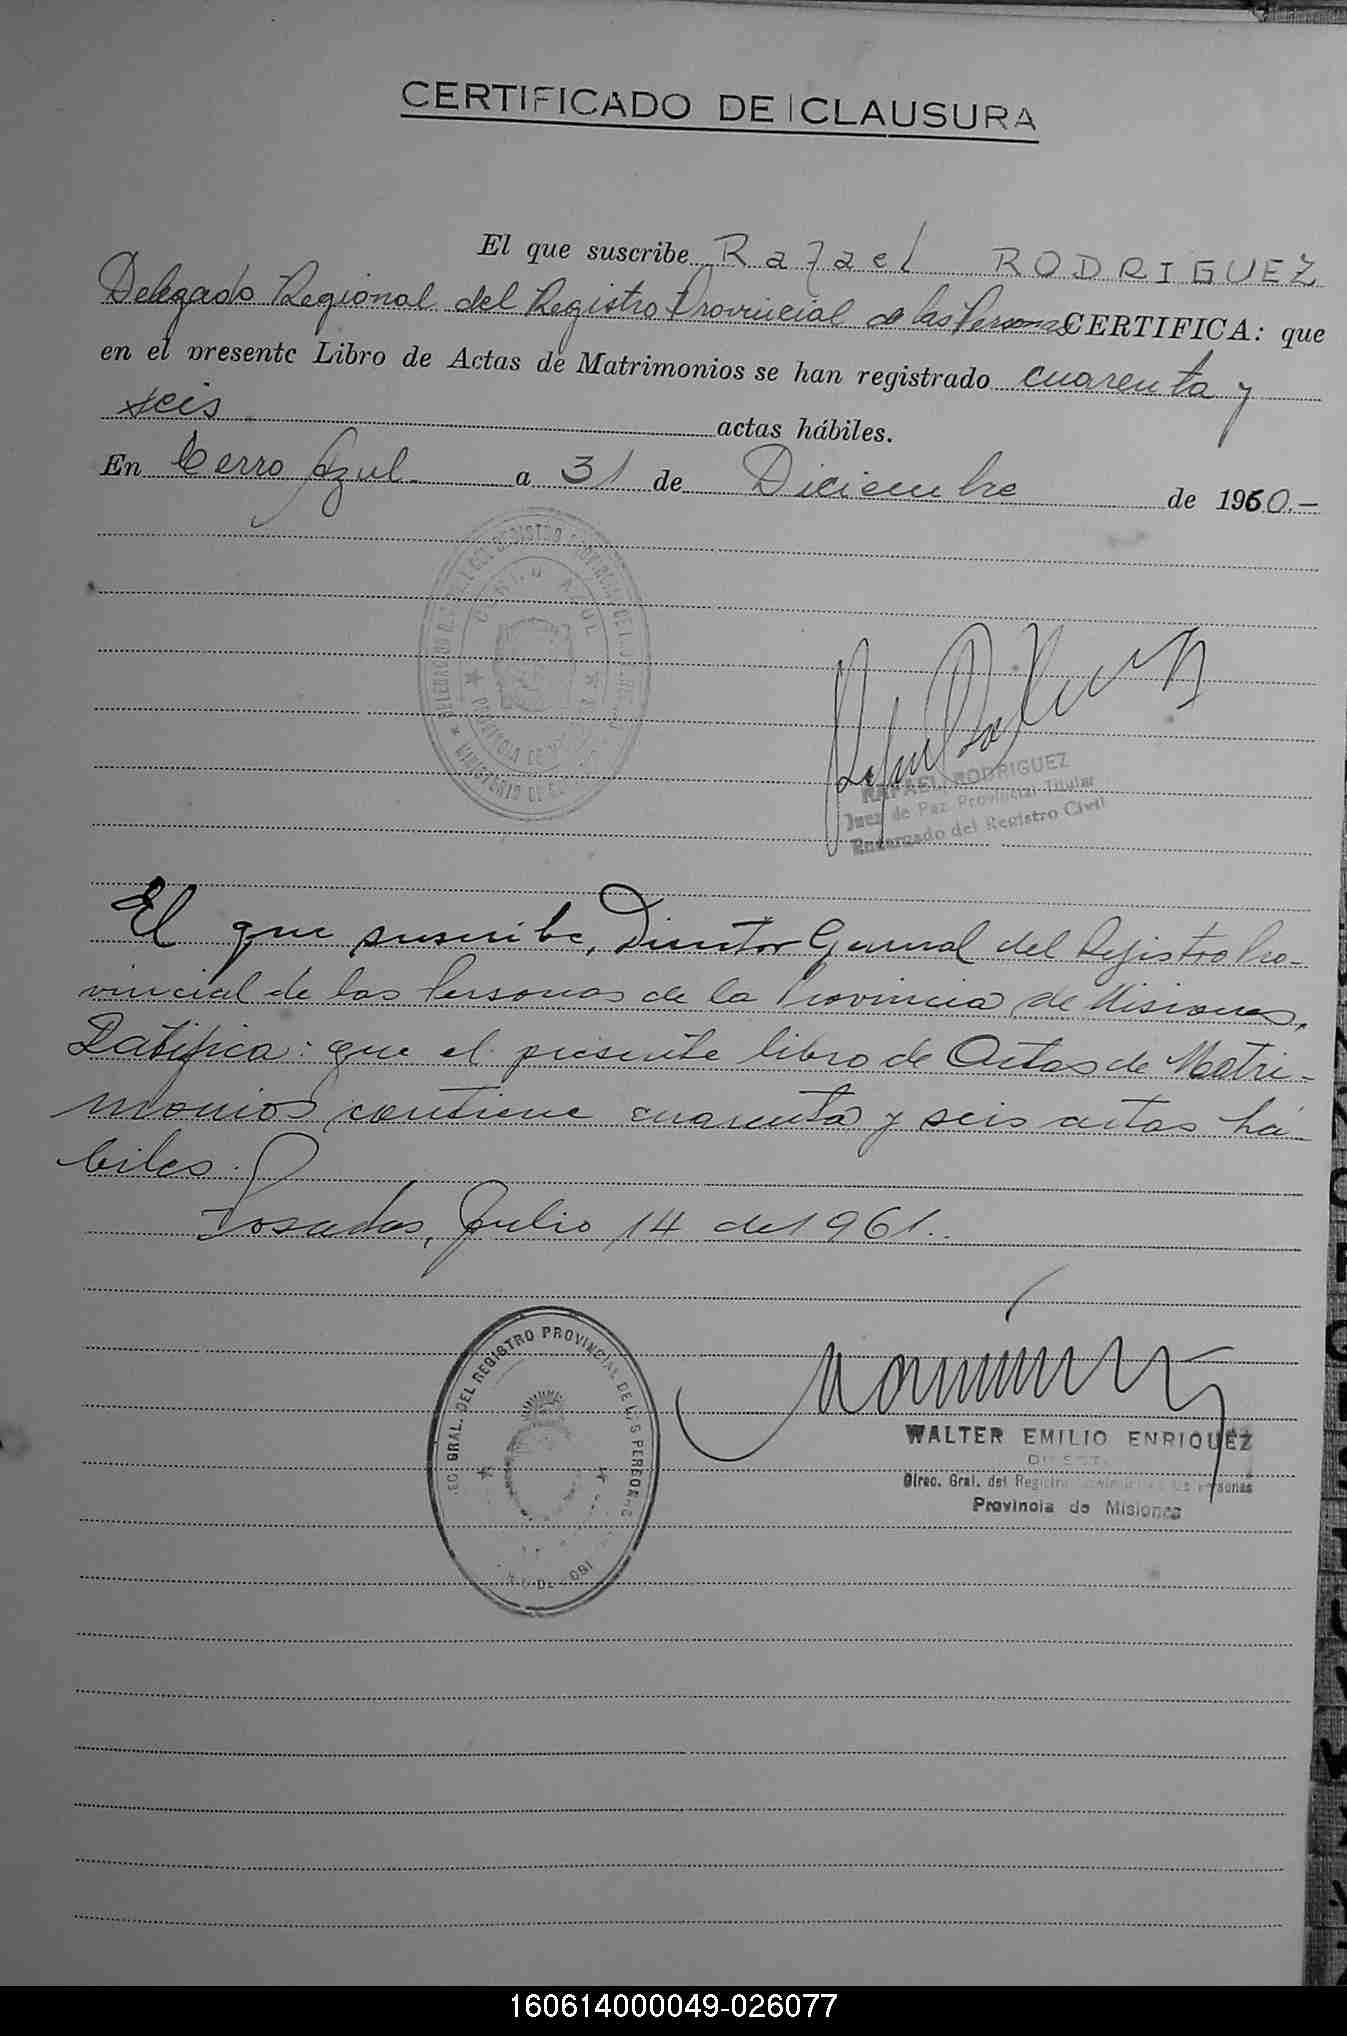 CERTIFICADO DE CLAUSURA
El que suscribe Rafael RODRIGUEZ
Delegado Regional del Registro Provincial de las Personas CERTIFICA: que
en el presente Libro de Actas de Matrimonios se han registrado cuarenta y
seis actas hábiles.
En Cerro Azul a 31 de Diciembre de 1960.-
CERRO AZUL
RAFAEL RODRIGUEZ
Juez de Paz Provincial Titular
Encargado del Registro Civil
El que suscribe, Director General del Registro Pro-
vincial de las Personas de la Provincia de Misiones,
Ratifica: que el presente libro de Actas de Matri-
monios contiene cuarenta y seis actas há-
biles.
Posadas, Julio 14 de 1961.
GRAL. DEL REGISTRO PROVINCIAL DE
WALTER EMILIO ENRIQUEZ
Direc. Gral. del Registro Personas
Provincia de Misiones
160614000049-026077